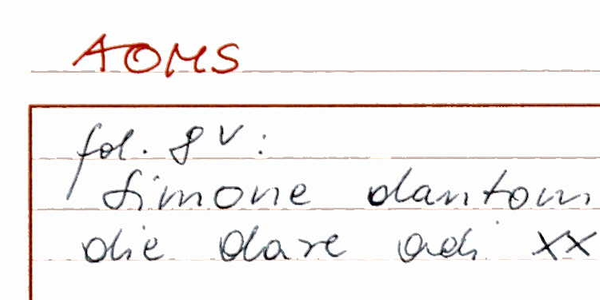 AOMS
fol. 8v:
Simone dantoni
die dare adi xx